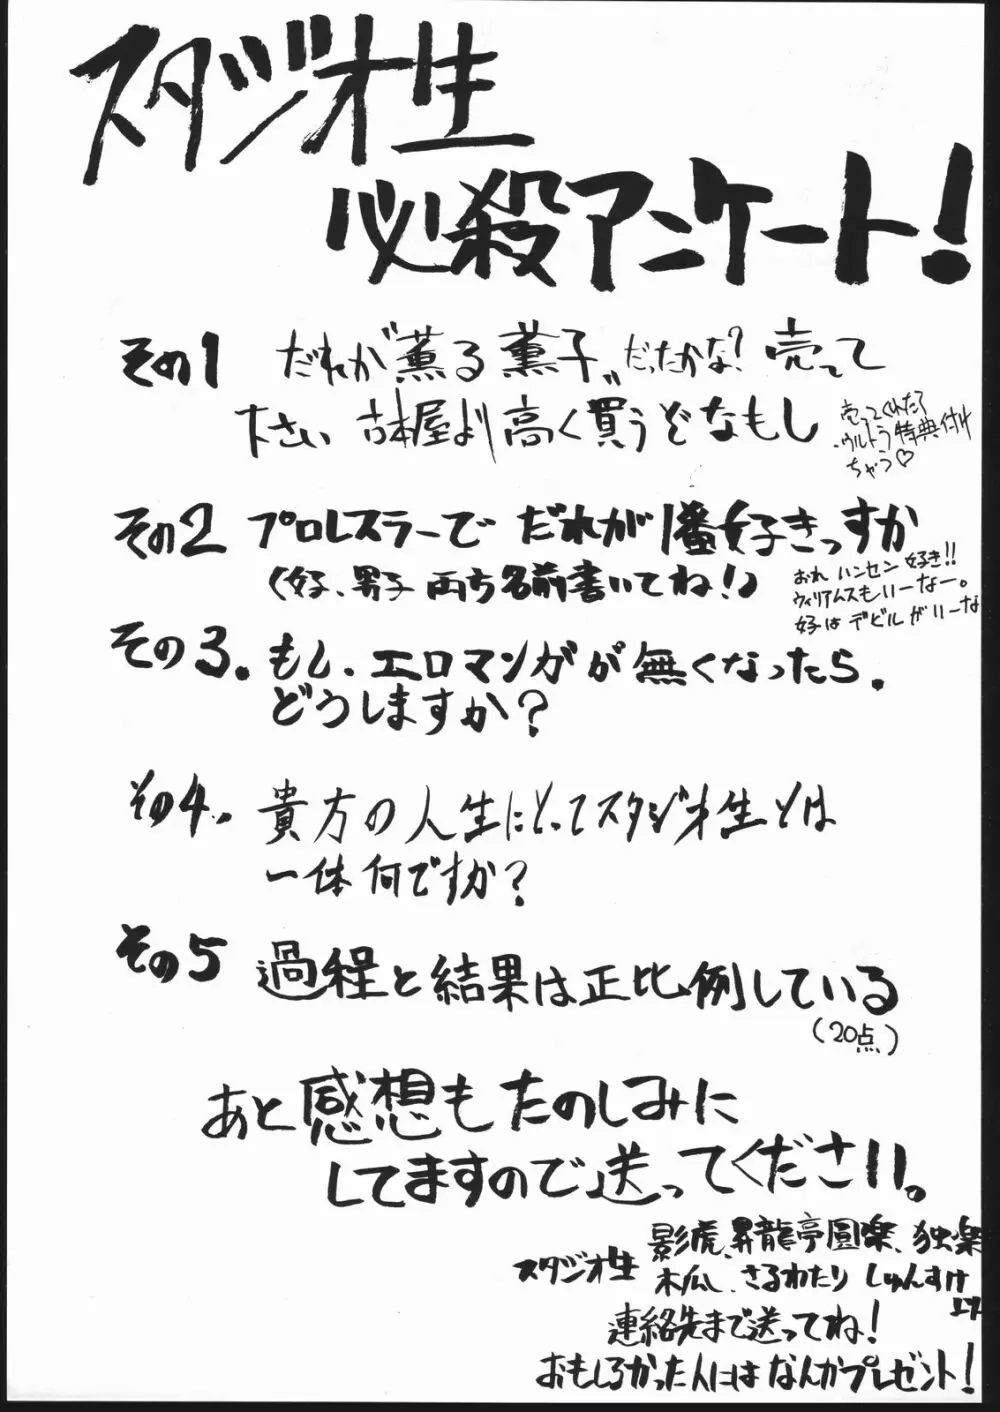 スタジオ生
必殺アンケート!
その1 だれが"薫る薫子"だったかな?売って
下さい 古本屋より高く買うぞなもし
売ってくれたら
ウルトラ特典付け
ちゃう♡
その2 プロレスラーで だれが1番好きっすか
(女子、男子 両方名前書いてね!)
おれ ハンセン 好き!!
ウィリアムスもいーなー。
女子は デビルがいーな
その3. もし、エロマンガが無くなったら、
どうしますか?
その4. 貴方の人生にとってスタジオ生とは
一体何ですか?
その5 過程と結果は正比例している
(20点)
あと感想もたのしみに
してますので送ってください。
スタジオ生 影虎、昇龍亭圓楽、独楽
木瓜、さるわたり しゅんすけ
連絡先まで送ってね!
おもしろかった人にはなんかプレゼント!